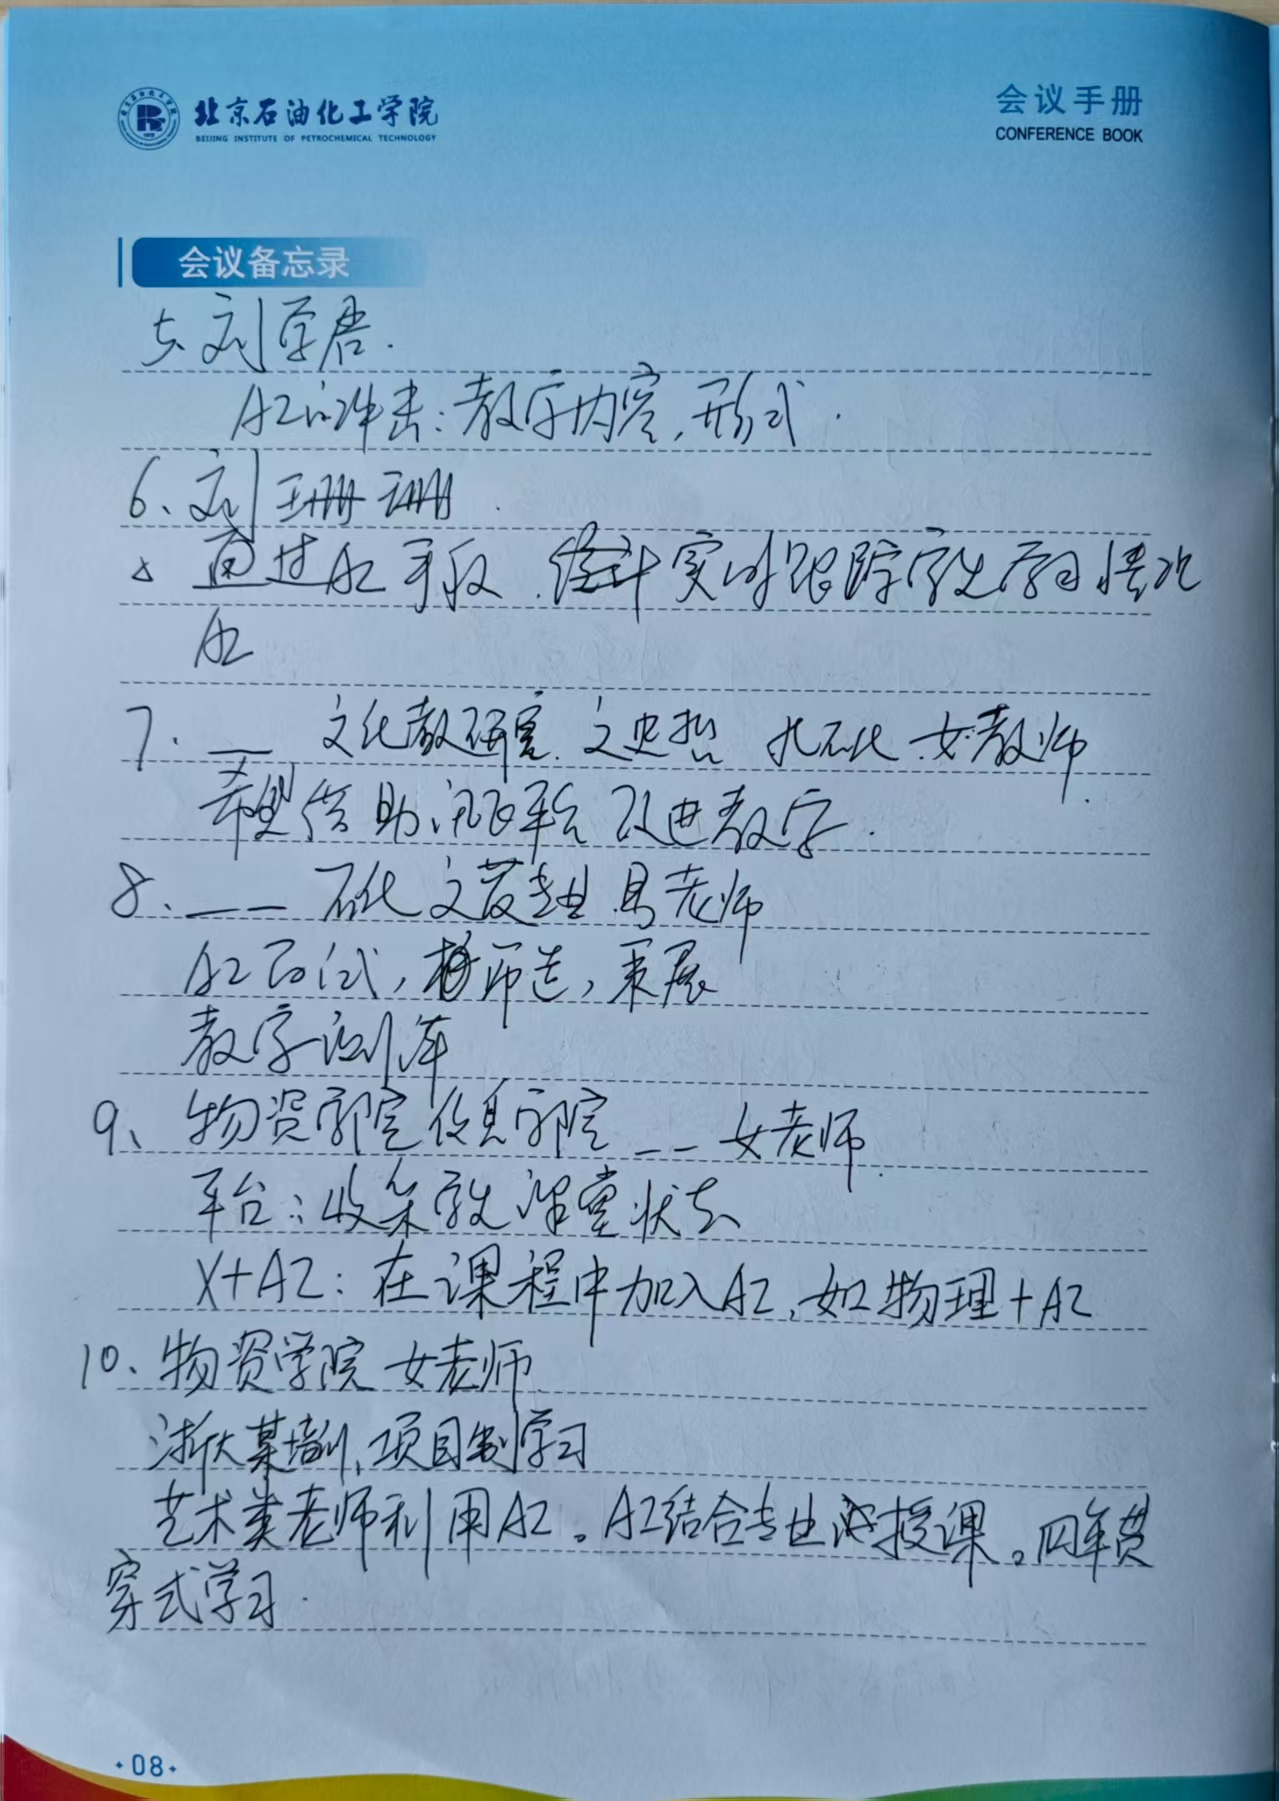 北京石油化工学院
BEIJING INSTITUTE OF PETROCHEMICAL TECHNOLOGY
会议手册
CONFERENCE BOOK
会议备忘录
5、刘学君.
AI的冲击:教学内容,形式.
6、刘珊珊.
通过AI手段.统计实时跟踪学生学习情况
AI
7. 文化教研室.文史哲 北石化.女教师.
希望借助讯飞平台改进教学.
8、石化文发专业.易老师
AI面试,
教学
9、物资学院信息学院 女老师.
平台:收集学生课堂状态
X+AI:在课程中加入AI,如物理+AI
10、物资学院 女老师.
浙大某培训,项目制学习
艺术类老师利用AI。AI结合专业授课。四年贯
穿式学习.
08